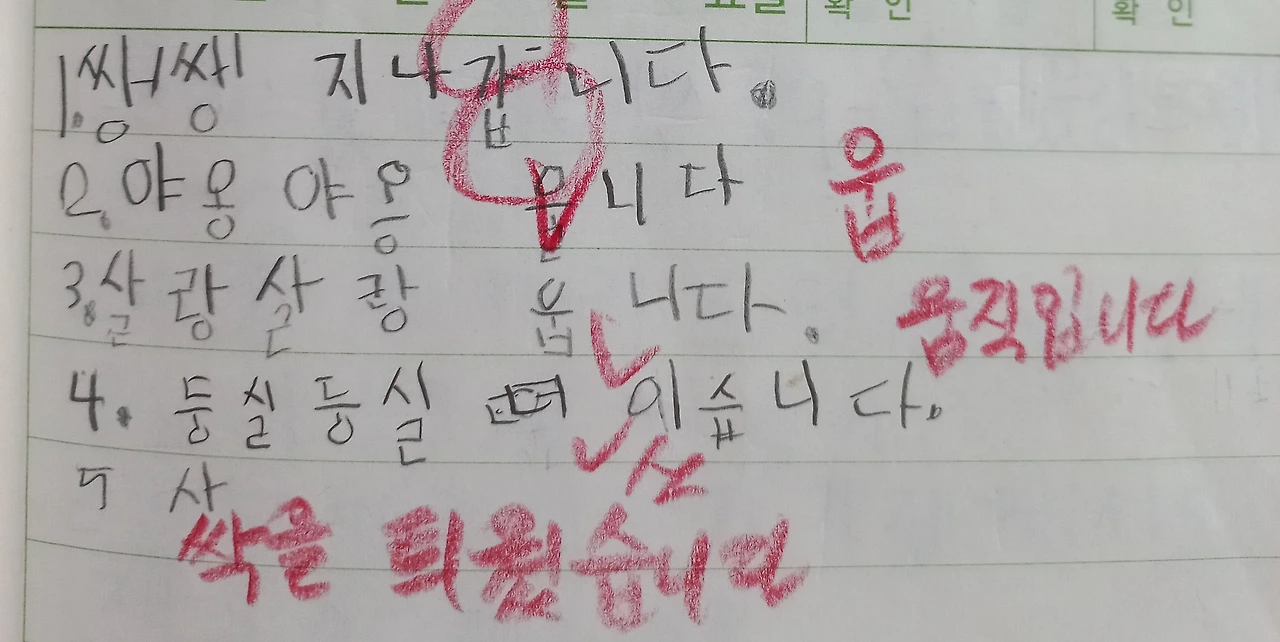 확 인 확 인
1. 쌩쌩 지나갑니다.
2. 야옹 야옹 니다 웁
3. 살랑살랑 웁 니다. 움직입니다
4. 둥실둥실 떠 이습니다.
5 사
싹을 틔웠습니다